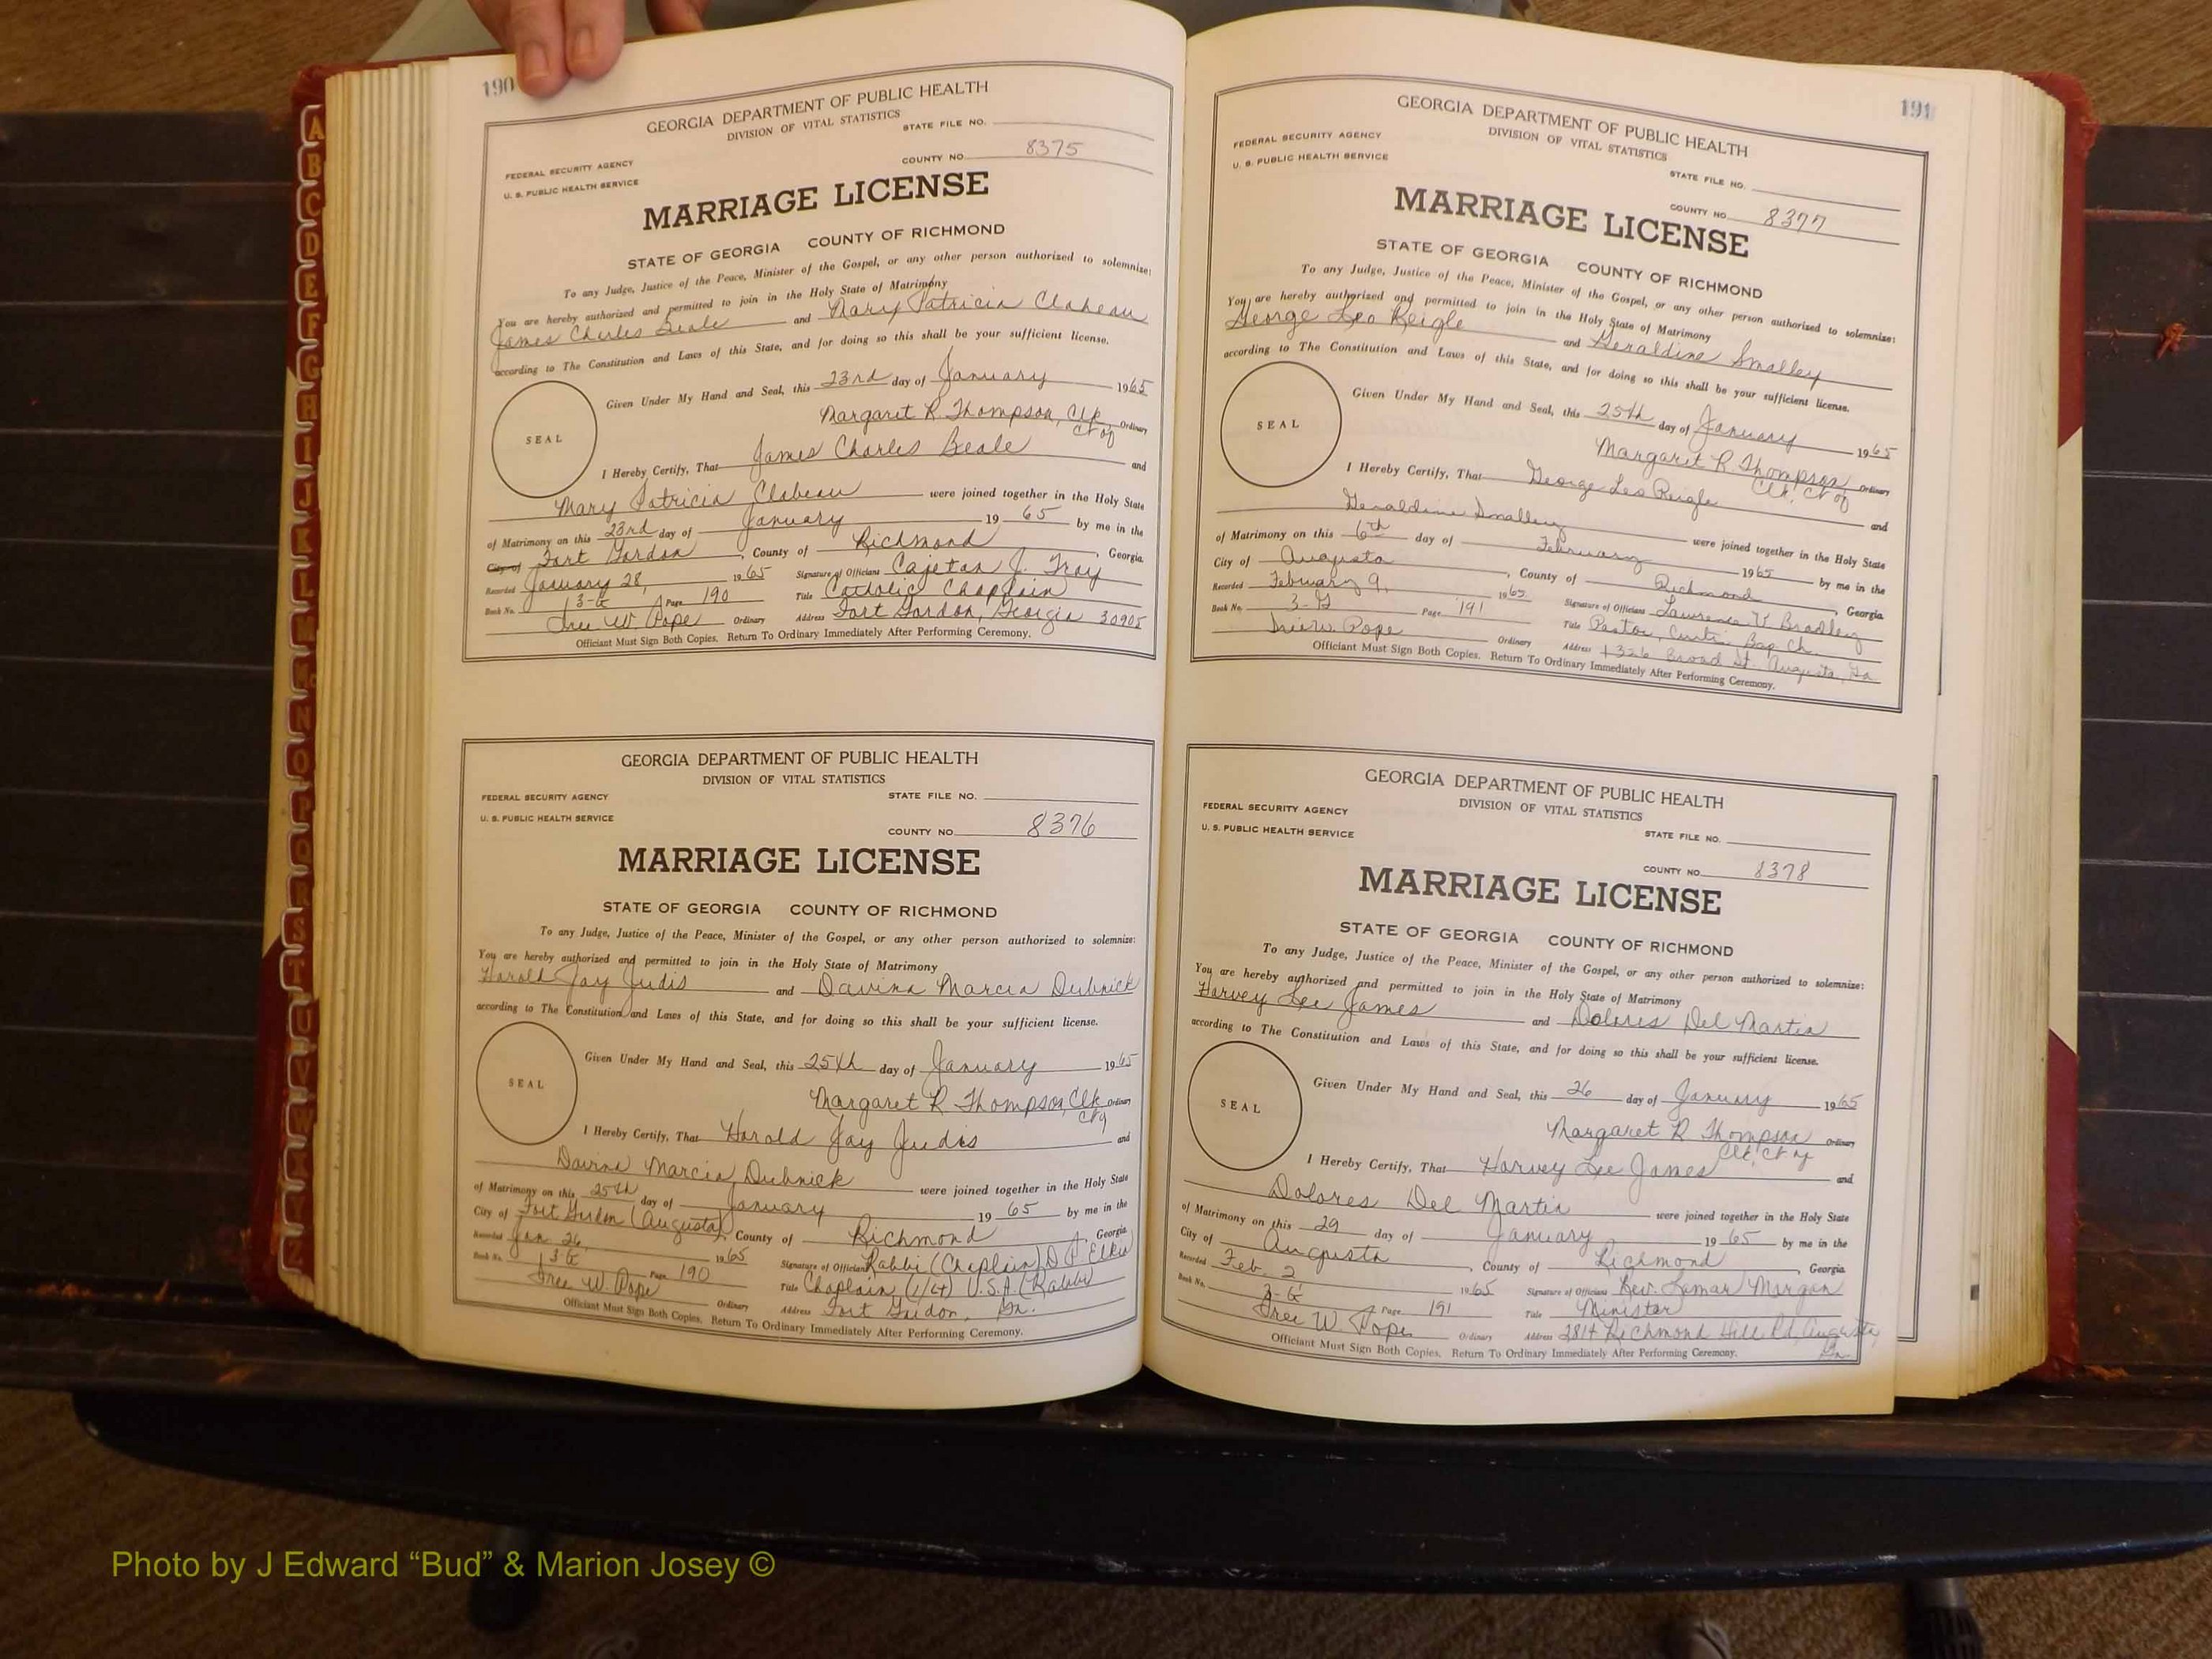 190
GEORGIA DEPARTMENT OF PUBLIC HEALTH
DIVISION OF VITAL STATISTICS
STATE FILE NO.
FEDERAL SECURITY AGENCY
COUNTY NO. 8375
U. S. PUBLIC HEALTH SERVICE
MARRIAGE LICENSE
STATE OF GEORGIA COUNTY OF RICHMOND
To any Judge, Justice of the Peace, Minister of the Gospel, or any other person authorized to solemnize:
You are hereby authorized and permitted to join in the Holy State of Matrimony
James Charles Beale and Mary Patricia Clabeau
according to The Constitution and Laws of this State, and for doing so this shall be your sufficient license.
Given Under My Hand and Seal, this 23rd day of January 1965
SEAL
Margaret R. Thompson, Clk Ordinary
Ct of
I Hereby Certify, That James Charles Beale and
Mary Patricia Clabeau were joined together in the Holy State
of Matrimony on this 23rd day of January 19 65 by me in the
City of Fort Gordon, County of Richmond, Georgia
Recorded January 28, 1965 Signature of Officiant Cajetan J. Troy
Book No. 3-G Page 190 Title Catholic Chaplain
W. Pope Ordinary Address Fort Gordon, Georgia 30905
Officiant Must Sign Both Copies. Return To Ordinary Immediately After Performing Ceremony.
GEORGIA DEPARTMENT OF PUBLIC HEALTH
DIVISION OF VITAL STATISTICS
FEDERAL SECURITY AGENCY
STATE FILE NO.
U. S. PUBLIC HEALTH SERVICE
COUNTY NO. 8376
MARRIAGE LICENSE
STATE OF GEORGIA COUNTY OF RICHMOND
To any Judge, Justice of the Peace, Minister of the Gospel, or any other person authorized to solemnize:
You are hereby authorized and permitted to join in the Holy State of Matrimony
Harold Jay Judis and Davina Marcia Dubnick
according to The Constitution and Laws of this State, and for doing so this shall be your sufficient license.
Given Under My Hand and Seal, this 25th day of January 1965
SEAL
Margaret R Thompson, Clk Ordinary
I Hereby Certify, That Harold Jay Judis and
Davina Marcia Dubnick were joined together in the Holy State
of Matrimony on this 25th day of January 19 65 by me in the
City of Fort Gordon (Augusta), County of Richmond, Georgia
Recorded Jan 26 1965 Signature of Officiant Rabbi (Chaplain)
Book No. 3G Page 190 Title Chaplain (1/Lt) U.S.A. (Rabbi)
W. Pope Ordinary Address Fort Gordon, Ga.
Officiant Must Sign Both Copies. Return To Ordinary Immediately After Performing Ceremony.
191
GEORGIA DEPARTMENT OF PUBLIC HEALTH
DIVISION OF VITAL STATISTICS
FEDERAL SECURITY AGENCY
U. S. PUBLIC HEALTH SERVICE
STATE FILE NO.
COUNTY NO. 8377
MARRIAGE LICENSE
STATE OF GEORGIA COUNTY OF RICHMOND
To any Judge, Justice of the Peace, Minister of the Gospel, or any other person authorized to solemnize:
You are hereby authorized and permitted to join in the Holy State of Matrimony
George Leo Reigle and Geraldine Smalley
according to The Constitution and Laws of this State, and for doing so this shall be your sufficient license.
Given Under My Hand and Seal, this 25th day of January 1965
SEAL
Margaret R Thompson Ordinary
Clk, Ct of
I Hereby Certify, That George Leo Reigle and
Geraldine Smalley were joined together in the Holy State
of Matrimony on this 6th day of February 1965 by me in the
City of Augusta, County of Richmond, Georgia
Recorded February 9, 1965 Signature of Officiant Lawrence V. Bradley
Book No. 3-G Page 191 Title Pastor, Bap Ch.
W. Pope Ordinary Address 1326 Broad St. Augusta, Ga
Officiant Must Sign Both Copies. Return To Ordinary Immediately After Performing Ceremony.
GEORGIA DEPARTMENT OF PUBLIC HEALTH
DIVISION OF VITAL STATISTICS
FEDERAL SECURITY AGENCY
U. S. PUBLIC HEALTH SERVICE
STATE FILE NO.
COUNTY NO. 8378
MARRIAGE LICENSE
STATE OF GEORGIA COUNTY OF RICHMOND
To any Judge, Justice of the Peace, Minister of the Gospel, or any other person authorized to solemnize:
You are hereby authorized and permitted to join in the Holy State of Matrimony
Harvey Lee James and Dolores Del Martin
according to The Constitution and Laws of this State, and for doing so this shall be your sufficient license.
Given Under My Hand and Seal, this 26 day of January 1965
SEAL
Margaret R Thompson Ordinary
Clk, Ct of
I Hereby Certify, That Harvey Lee James and
Dolores Del Martin were joined together in the Holy State
of Matrimony on this 29 day of January 19 65 by me in the
City of Augusta, County of Richmond, Georgia
Recorded Feb. 2 1965 Signature of Officiant Rev. Lamar Morgan
Book No. 3-G Page 191 Title Minister
W. Pope Ordinary Address 2814 Richmond Hill Rd, Augusta
Ga
Officiant Must Sign Both Copies. Return To Ordinary Immediately After Performing Ceremony.
A
B
C
D
E
F
G
H
I
J
K
L
M
N
O
P
Q
R
S
T
U
V
W
Photo by J Edward “Bud” & Marion Josey ©